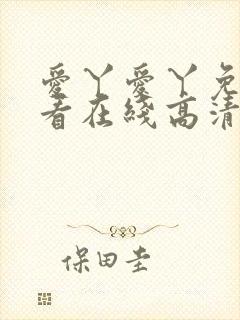 愛丫愛丫免
看在綫高清
保田圭